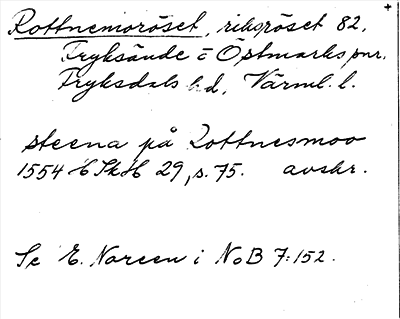 Rottnemoröset, riksröset 82,
Fryksände o Östmarks pnr,
Fryksdals hd, Värml. l.
steena på Rottnesmoo
1554 ESkH 29, s. 75. avskr.
Se E. Noreen i NoB 7:152.